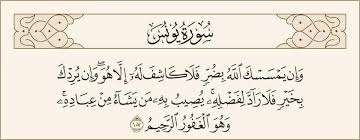 سُورَةُ يُونُسَ
وَإِن يَمْسَسْكَ ٱللَّهُ بِضُرٍّ فَلَا كَاشِفَ لَهُۥٓ إِلَّا هُوَ ۖ وَإِن يُرِدْكَ
بِخَيْرٍ فَلَا رَآدَّ لِفَضْلِهِۦ ۚ يُصِيبُ بِهِۦ مَن يَشَآءُ مِنْ عِبَادِهِۦ ۚ
وَهُوَ ٱلْغَفُورُ ٱلرَّحِيمُ ١٠٧